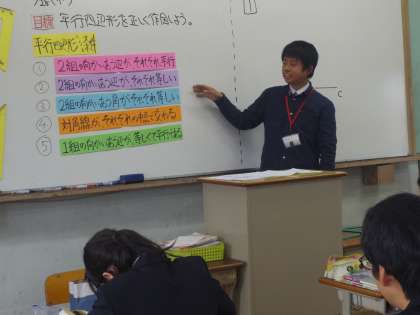 目標 平行四辺形を正しく作図しよう。
平行四辺形の条件
① 2組の向かいあう辺が、それぞれ平行
② 2組の向かいあう辺が、それぞれ等しい
③ 2組の向かいあう角が、それぞれ等しい
④ 対角線が、それぞれの中点で交わる
⑤ 1組の向かいあう辺が、等しくて平行である
C